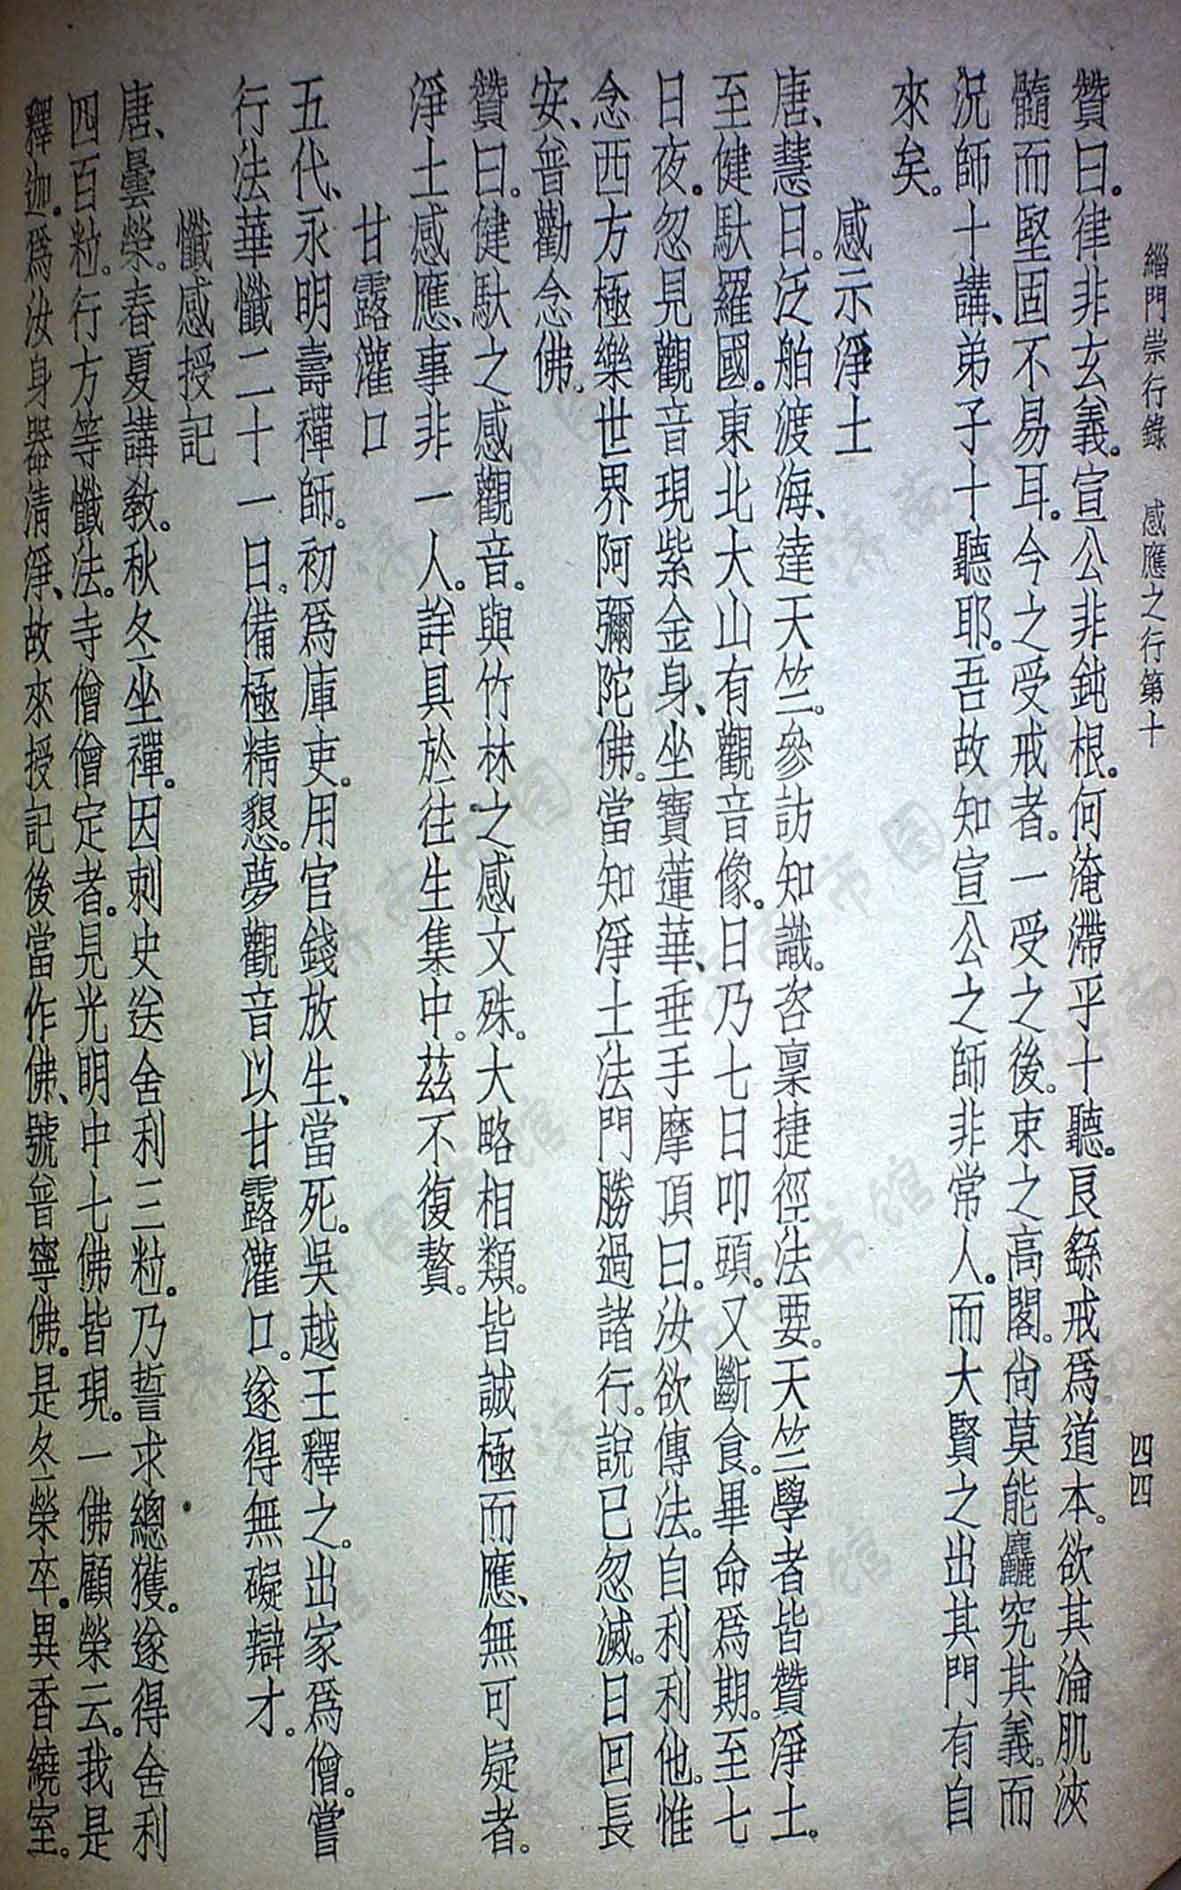 緇門崇行錄　感應之行第十　四四
贊曰。律非玄義。宣公非鈍根。何淹滯乎十聽。良繇戒爲道本。欲其淪肌浹
髓而堅固不易耳。今之受戒者。一受之後。束之高閣。尙莫能麤究其義。而
況師十講、弟子十聽耶。吾故知宣公之師非常人。而大賢之出其門有自
來矣。
感示淨土
唐、慧日。泛舶渡海、達天竺。參訪知識。咨稟捷徑法要。天竺學者皆贊淨土。
至健馱羅國。東北大山有觀音像。日乃七日叩頭。又斷食。畢命爲期。至七
日夜。忽見觀音現紫金身、坐寶蓮華、垂手摩頂曰。汝欲傳法。自利利他。惟
念西方極樂世界阿彌陀佛。當知淨土法門勝過諸行。說已忽滅。日回長
安、普勸念佛。
贊曰。健馱之感觀音。與竹林之感文殊。大略相類。皆誠極而應、無可疑者。
淨土感應、事非一人。詳具於往生集中。茲不復贅。
甘露灌口
五代、永明壽禪師。初爲庫吏。用官錢放生、當死。吳越王釋之。出家爲僧。嘗
行法華懺二十一日。備極精懇。夢觀音以甘露灌口。遂得無礙辯才。
懺感授記
唐、曇榮。春夏講敎。秋冬坐禪。因刺史送舍利三粒。乃誓求總獲。遂得舍利
四百粒。行方等懺法。寺僧僧定者。見光明中七佛皆現。一佛顧榮云。我是
釋迦。爲汝身器淸淨、故來授記後當作佛、號普寧佛。是冬榮卒。異香繞室。